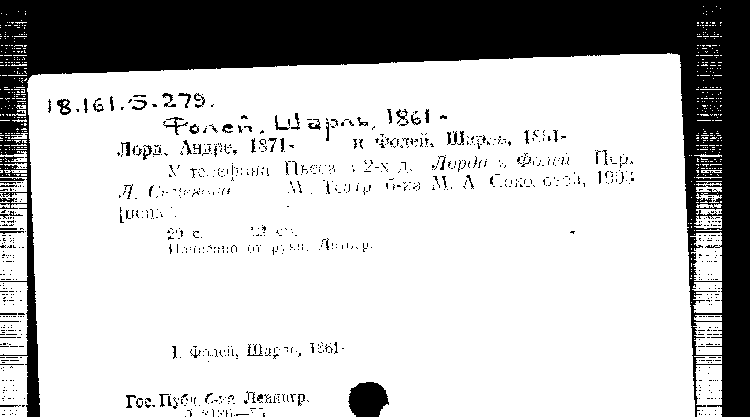 18.161.5.279.
Фолей, Шарль, 1861-
Лорд, Андре, 1871- и Фолей, Шарль, 1861-
У телефона Пьеса в 2-х д. Лорда и Фолей Пер.
Л. М. Театр. б-ка М. А. Соколовой, 1903
[ценз.].
29 с. 22 см.
Написано от руки. Литогр.
1. Фолей, Шарль, 1861-
Гос. Публ. б-ка Ленингр.